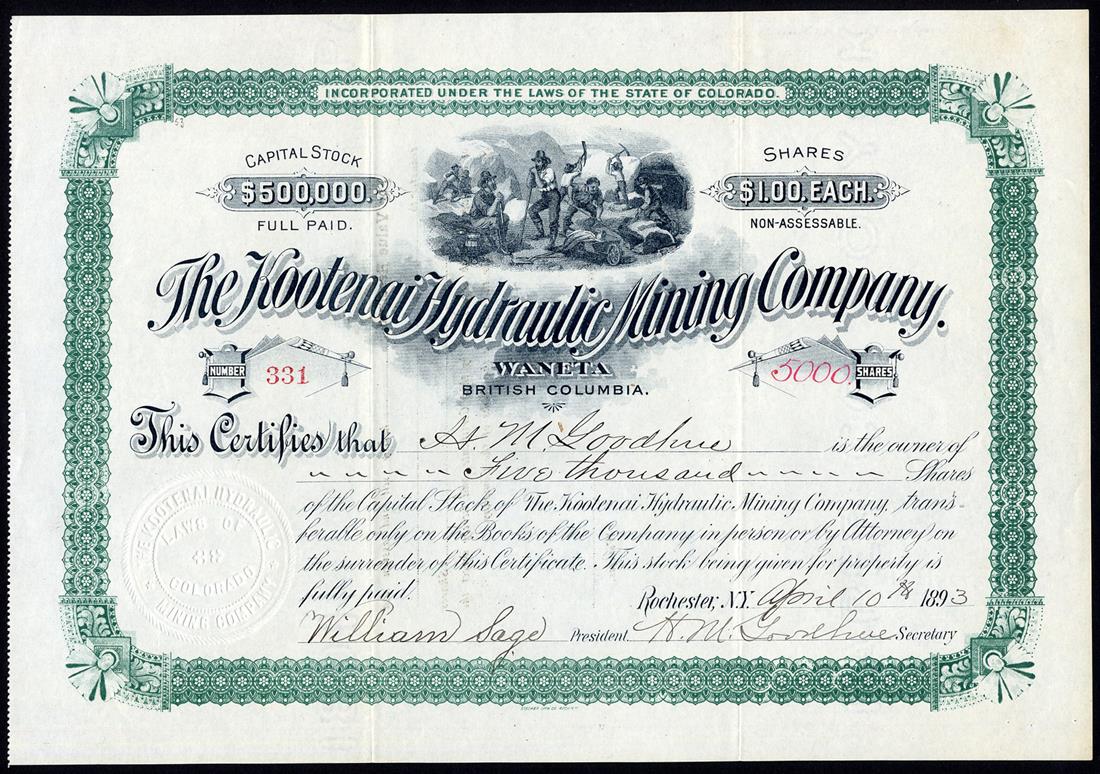 INCORPORATED UNDER THE LAWS OF THE STATE OF COLORADO.
CAPITAL STOCK
$500,000.
FULL PAID.
SHARES
$1.00. EACH.
NON-ASSESSABLE.
The Kootenai Hydraulic Mining Company.
WANETA
BRITISH COLUMBIA.
NUMBER 331
5000. SHARES
This Certifies that H. M. Goodhue is the owner of
Five thousand Shares
of the Capital Stock of The Kootenai Hydraulic Mining Company, trans-
ferable only on the Books of the Company in person or by Attorney on
the surrender of this Certificate. This stock being given for property is
fully paid.
Rochester, N.Y. April 10th 1893
William Sage President H. M. Goodhue Secretary
THE KOOTENAI HYDRAULIC
MINING COMPANY
LAWS OF
COLORADO